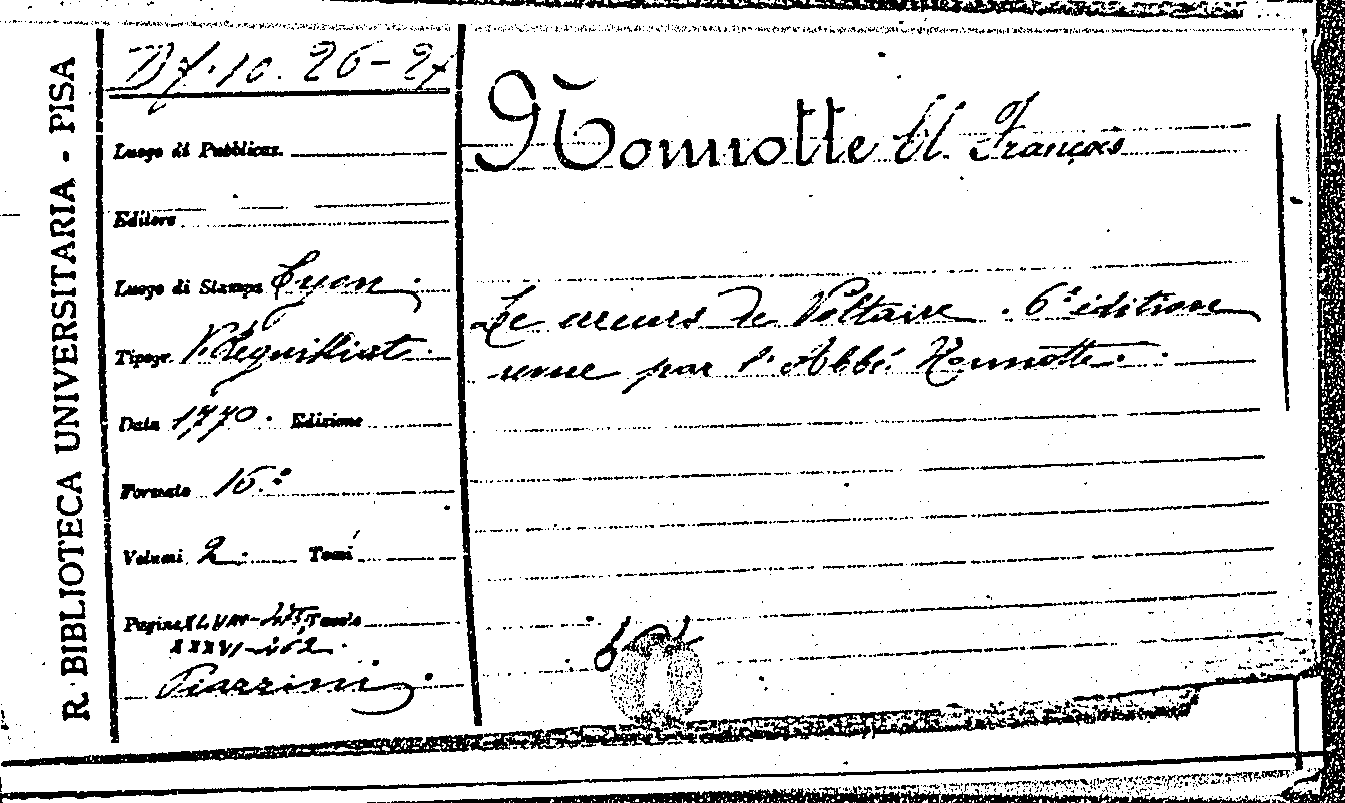 R. BIBLIOTECA UNIVERSITARIA - PISA
10. 26-27
Luogo di Pubblicaz.
Editore
Luogo di Stampa Lyon.
Tipogr. V. Reguilliat.
Data 1770. Edizione
Formato 16.º
Volumi 2. Tomi
Pagine XLVIII- Tavole
XXXVI-
Piazzini
Nonnotte Cl. François
Le erreurs de Voltaire. 6e editione
revue par l'Abbé Nonnotte.